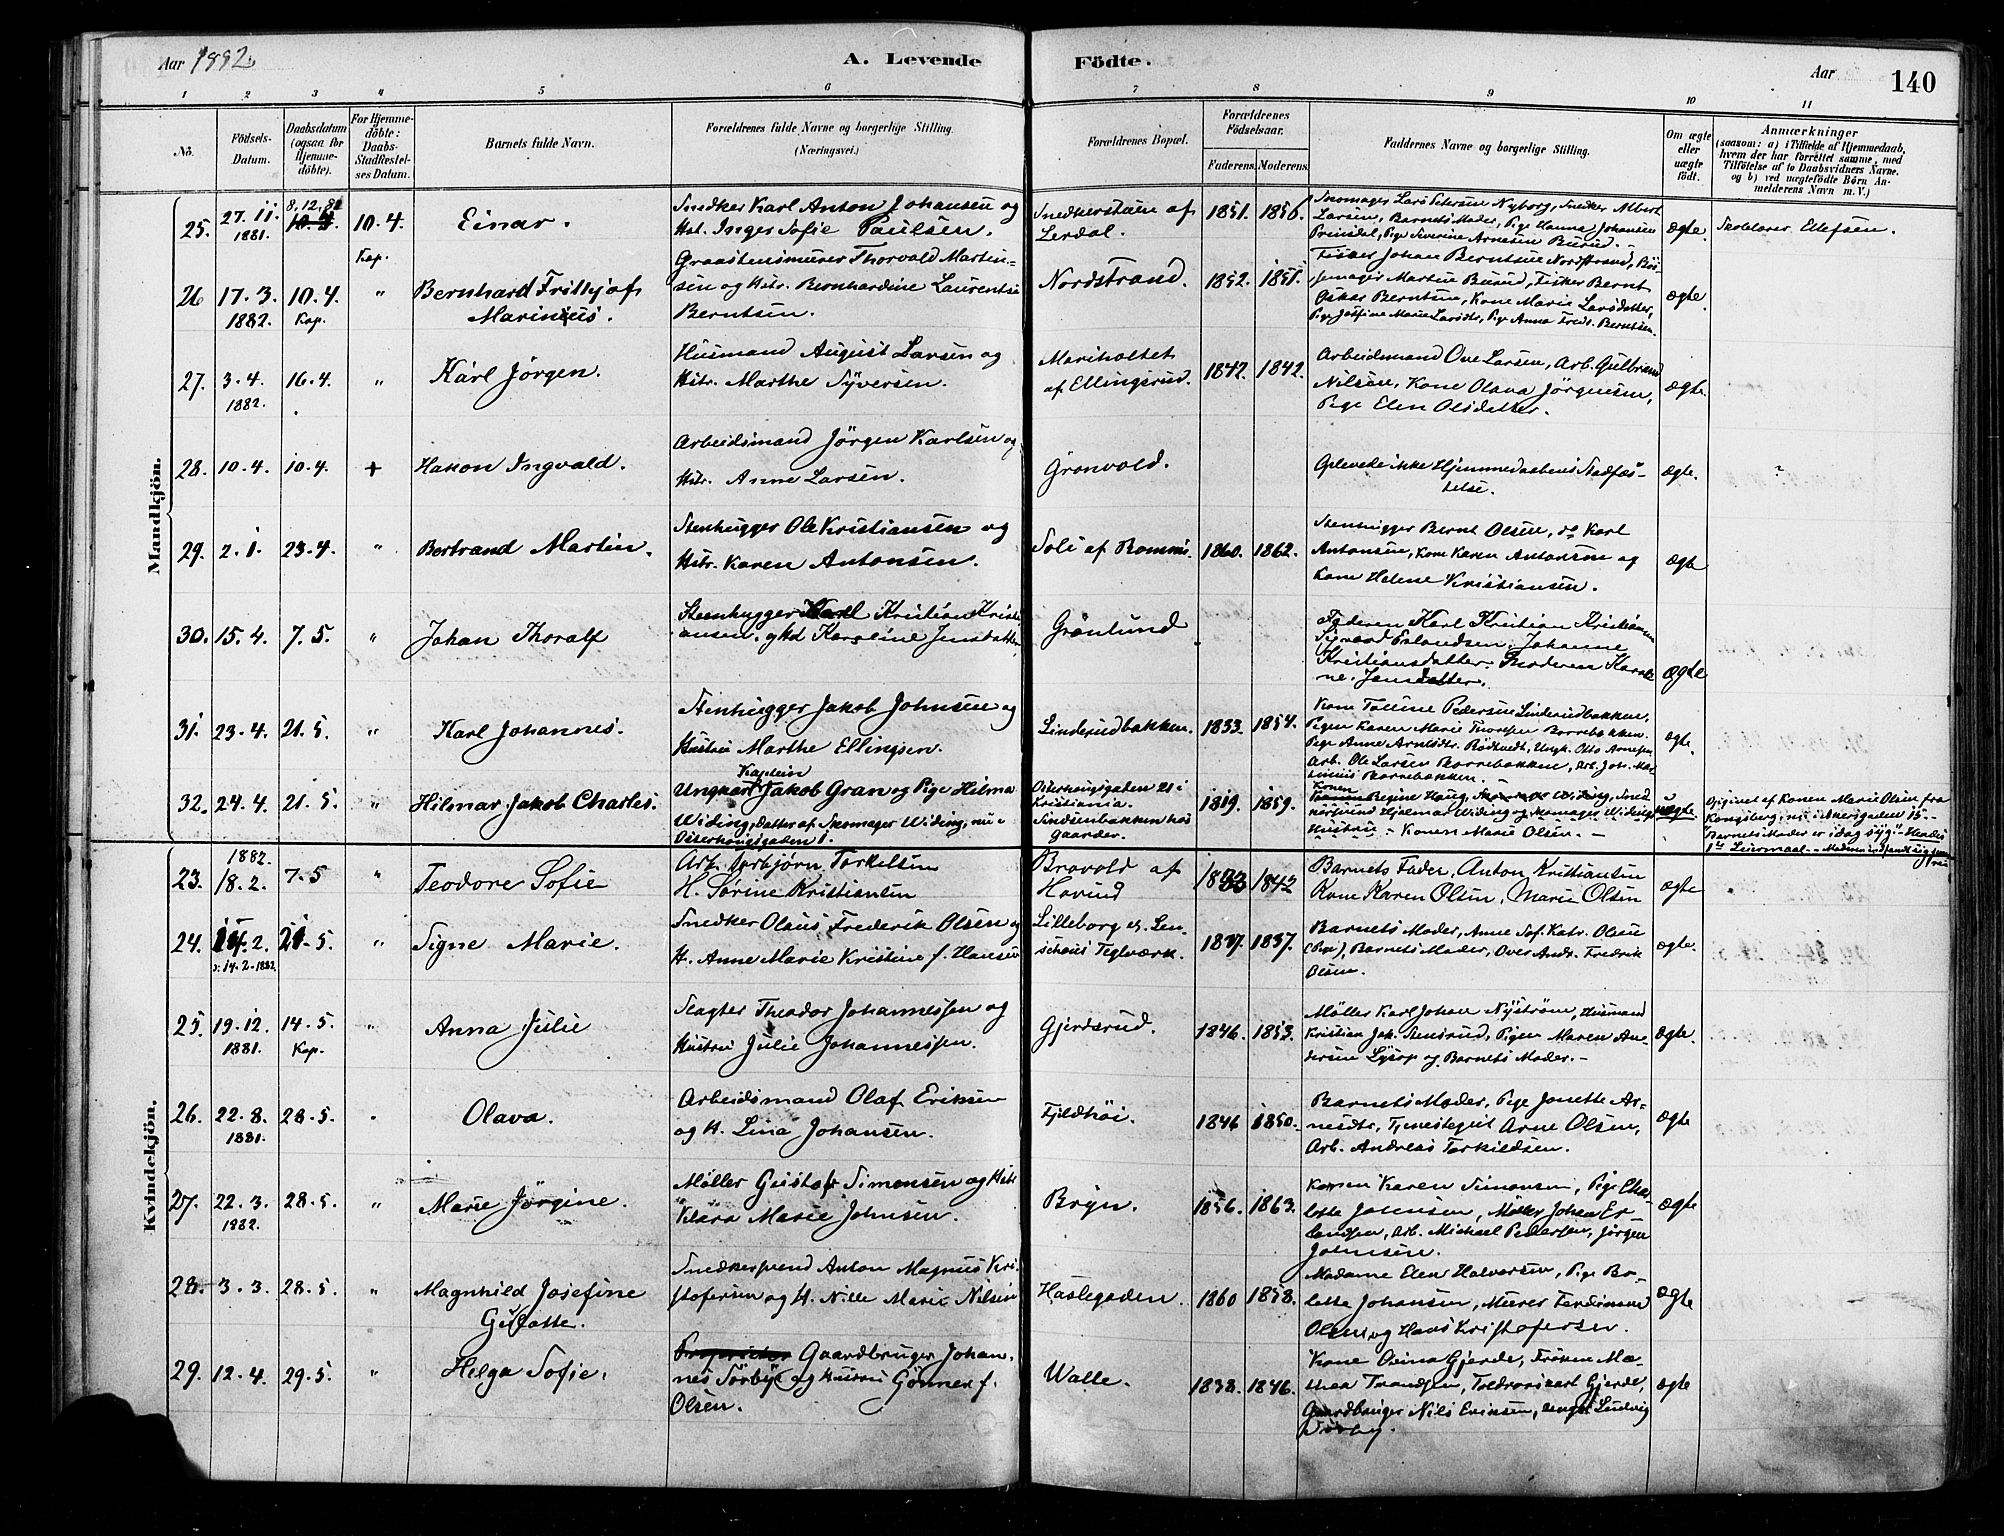 Aar 1882
A. Levende Födte.
Aar 140
1 2 3 4 5 6 7 8 9 10 11
No.
Födsels-Datum.
Daabsdatum (ogsaa for Hjemmedöbte).
For Hjemmedöbte: Daabs-Stadfestelses Datum.
Barnets fulde Navn.
Forældrenes fulde Navne og borgerlige Stilling. (Næringsvei.)
Forældrenes Bopæl.
Forældrenes Födselsaar.
Faderens. Moderens.
Faddernes Navne og borgerlige Stilling.
Om ægte eller uægte födt.
Anmærkninger
(saasom: a) i Tilfælde af Hjemmedaab,
hvem der har forrettet samme, med
Tilföielse af to Daabsvidners Navne.
og b) ved uægtefödte Börn Anmelderens Navn m. V.)
Mandkjön.
25. 27. 11. 1881. 8, 12, 81 10. 4 10. 4. Kap.
Einar.
Snedker Karl Anton Johansen og
Hst. Inger Sofie Paulsen.
Snedkerstuen af
Lerdal.
1851. 1856.
Skomager Lars Petersen Nyborg, Snedker Albert
Larsen, Barnets Moder, Pige Hanna Johansen
Prinsdal, Pige Severine Arnesen Burud.
ægte
Skolelærer Ellefsen.
26 17. 3. 1882. 10. 4. Kap. "
Bernhard Frithjof
Marinius.
Graastensmurer Thorvald Martin=
sen og Hstr. Bernhardine Laurentse
Berntsen.
Nordstrand.
1852. 1851.
Fisker Johan Berntsen Nordstrand, Bös
semager Martin Burud, Fisker Bernt
Oskar Berntsen, Kone Marie Larsdatter,
Pige Josefine Marie Larsdtr, Pige Anna Fredr. Berntsen.
ægte
27. 3. 4. 1882. 16. 4. "
Karl Jörgen.
Husmand August Larsen og
Hstr. Marthe Syversen.
Mariholtet
af Ellingsrud.
1842. 1842.
Arbeidsmand Ove Larsen, Arb. Gulbrand
Nilsen, Kone Olava Jörgensen,
Pige Elen Olsdatter.
ægte
28. 10. 4. 10. 4. +
Hakon Ingvald.
Arbeidsmand Jörgen Karlsen og
Hstr. Anne Larsen.
Gronvold.
Oplevede ikke Hjemmedaabens Stadfæs-
telse.
ægte.
29. 2. 1. 23. 4. "
Bertrand Martin.
Stenhugger Ole Kristiansen og
Hstr. Karen Antonsen.
Soli af Rommi
1860. 1862.
Stenhugger Bernt Olsen, do Karl
Antonsen, Kone Karen Antonsen og
Kone Helene Kristiansen.
ægte
30. 15. 4. 7. 5. "
Johan Thoralf
Stenhugger Karl Kristian Kristi
ansen. og Hd Karoline Jensdatter
Grönlund
Faderen Karl Kristian Kristiansen
Sigvard Erlandsen. Johanne
Kristiansdatter. Moderen Karoli
ne. Jensdatter.
ægte
31. 23. 4. 21. 5. "
Karl Johannes.
Stenhugger Jakob Johnsen og
Hustru Marthe Ellingsen.
Linderudbakken.
1833. 1854.
Kone Tolline Pedersen Linderudbakken,
Pigen Karen Marie Thorsen Borrebakken.
Pige Anne Arnesdtr. Rödtvedt, Ungk. Otto Arnesen
Arb. Ole Larsen Borrebakken, Arb. Joh. Mar
Borrebakken.
ægte.
32. 24. 4. 21. 5. "
Hilmar Jakob Charles.
Kaptein
Ungkarl Jakob Gran og Pige Hilma
Widing, Datter af Skomager Widing, nu i
Osterhausgaden 1.
Osterhausgaden 21 i
Kristiania.
Sindsenbakken hos
Gaarder.
1819. 1859.
Konen
Regine Haug, Skomager Widing, Sned
kersvend Hjalmar Widing og Skomager Widings
Hustru - Konen Marie Olsen. -
uægte
Opgivet af Konen Marie Olsen fra
Kongsberg, nu i Akersgaden 15.-
"Barnets Moder er idag syg" - Hendes
1ste Leiermaal. -
Kvindekjön.
23. 1882. 18. 2. 7. 5 "
Teodore Sofie
Arb. Torbjörn Torkelsen
H. Sörine Kristiansen
Bravold af
Hovind
1833 1842
Barnets Fader, Anton Kristiansen
Kone Karen Olsen, Marie Olsen
ægte
24. 14. 2. ɔ: 14. 2. 1882. 21. 5. "
Signe Marie.
Snedker Olaus Frederik Olsen og
H. Anne Marie Kristine f. Hansen
Lilleborg v. Len-
schaus Teglværk.
1837. 1837.
Barnets Moder, Anne Sof. Katr. Olsen
(Bor), Barnets Moder, Oves Andr. Fredrik
Olsen.
ægte.
25 19. 12. 1881. 14. 5. Kap. "
Anna Julie
Slagter Theodor Johannessen og
Hustru Julie Johannessen.
Gjerdsrud.
1846. 1853.
Møller Karl Johan Nyström, Husmand
Kristian Joh. Stensrud, Pigen Maren An-
dersen Lysop og Barnets Moder. -
ægte.
26. 22. 8. 1881. 28. 5. "
Olava.
Arbeidsmand Olaf Eriksen
og H. Lina Johansen.
Fjeldhöi.
1846 1850.
Barnets Moder, Pige Jonette Ar-
nesdtr, Tjenestegut Arne Olsen,
Arb. Andreas Torkildsen.
ægte
27. 22. 3. 1882. 28. 5. "
Marie Jörgine.
Møller Gustaf Simonsen og Hstr
Klara Marie Johnsen.
Bryn.
1856. 1863.
Konen Karen Simonsen, Pige Cha
lotte Johnsen, Møller Johan Er-
landsen, Arb. Michael Pedersen, Jörgen
Johnsen.
ægte
28. 3. 3. 28. 5. "
Magnhild Josefine
Gusatte.
Snedkersvend Anton Magnus Kri-
stofersen og H. Nille Marie Nilsen
Haslegaden.
1860 1858.
Madame Elen Halvorsen, Pige Bo-
lette Johansen, Murer Ferdinand
Olsen og Hans Kristofersen.
ægte
29. 12. 4. 29. 5. "
Helga Sofie.
Proprietær Gaardbruger Johan-
nes Sörbye og Hustru Gönner f.
Olsen.
Walle.
1838. 1846.
Kone Gjerde, Fröken Ma-
thea Trondsen, Gjerde,
Gaardbruger Nils Eriksen, Ludvig
Sörby.
ægte